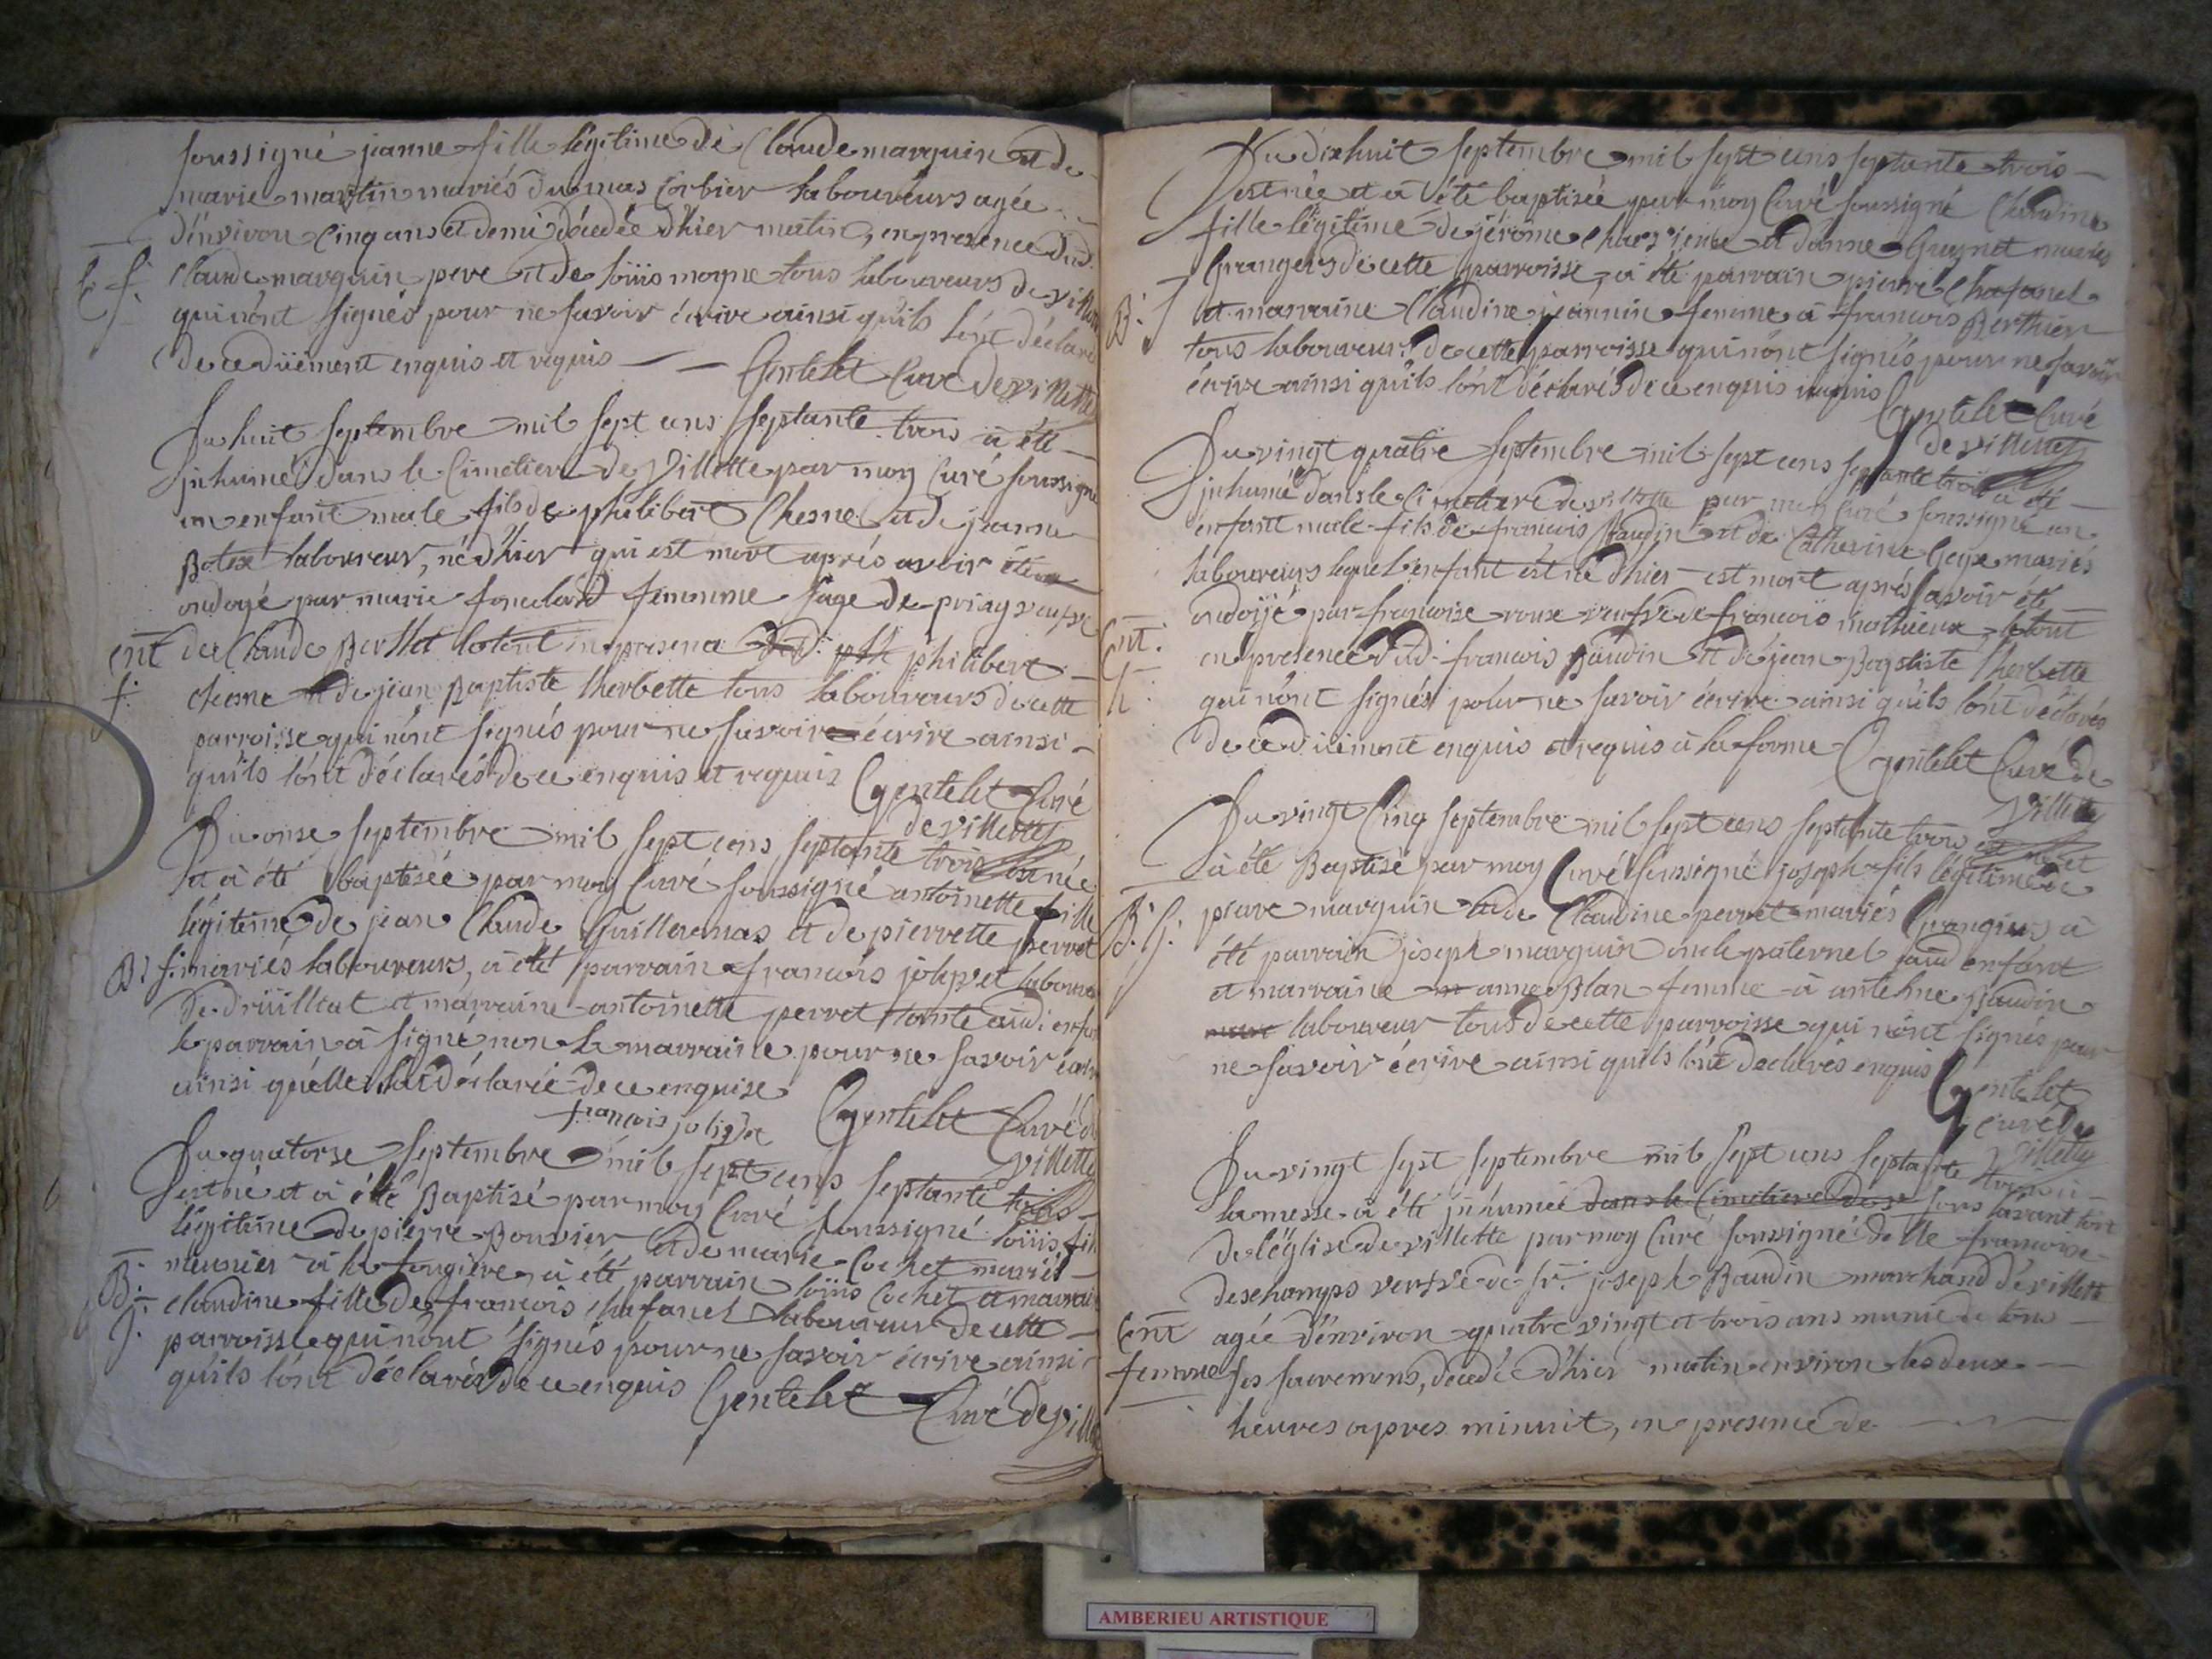 soussigné jeanne fille légitime de Claude marquin et de
marie martin mariés du mas Corbier laboureurs agée
d'environ cinq ans et demi décédée d'hier matin, en presence dud.
E f. Claude marquin pere et de loüis moyne tous laboureurs de villette
qui n'ont signés pour ne savoir écrire ainsi qu'ils l'ont déclaré
de ce düement enquis et requis Gentelet Curé de villette
Du huit septembre mil sept cens septante trois a été
inhumé dans le Cimetiere de Villette par moy Curé soussigné
un enfant male fils de philibert Chesne et de jeanne
laboureur, né d'hier qui est mort aprés avoir été
ondoyé par marie femme sage de priay veufve
ent de Claude Berthet le tout en presence dud. philibert
f. chesne et de jean Baptiste therbette tous laboureurs de cette
parroisse qui n'ont signés pour ne savoir écrire ainsi
qu'ils l'ont déclarés de ce enquis et requis Gentelet Curé
de villette
Du onse septembre mil sept cens septante trois est née
et a été baptisée par moy Curé soussigné antoinette fille
légitime de jean Claude Guillermas et de pierrette perret
B. f. mariés laboureurs, a été parrain francois laboureur
de drüillat et marraine antoinette perret tante aud. enfant
le parrain a signé non la marraine pour ne savoir écrire
ainsi qu'elle l'at déclarée de ce enquise
francois Gentelet Curé de
villette
Du quatorse septembre mil sept cens septante trois
est né et a été Baptisé par moy Curé soussigné loüis fils
légitime de pierre Bouvier et de marie Cochet mariés
B. meunier à la fougiere, a été parrain loüis Cochet et marraine
g. claudine fille de francois chafanel laboureur de cette
parroisse qui n'ont signés pour ne savoir écrire ainsi
qu'ils l'ont déclarés de ce enquis Gentelet Curé de villette
Du dixhuit septembre mil sept cens septante trois
est née et a été baptisée par moy Curé soussigné Claudine
fille légitime de jérome et d'anne mariés
Grangers de cette parroisse, a été parrain pierre Chafanel
B. f et marraine Claudine jeannin femme à francois Berthier
tous laboureurs de cette parroisse qui n'ont signés pour ne savoir
écrire ainsi qu'ils l'ont déclarés de ce enquis requis
Gentelet Curé
de villette
Du vingt quatre septembre mil sept cens septante trois a été
inhumé dans le Cimetiere de villette par moy Curé soussigné un
enfant male fils de francois Baudin et de Catherine mariés
laboureurs lequel enfant est né d'hier est mort aprés avoir été
ondoyé par francoise roux veufve de francois mathieux, le tout
Ent. en presence dud. francois Baudin et de jean Baptiste therbette
qui n'ont signés pour ne savoir écrire ainsi qu'ils l'ont déclarés
de ce düement enquis et requis à la forme Gentelet Curé de
villette
Du vingt Cinq septembre mil sept cens septante trois est né et
a été Baptisé par moy Curé soussigné joseph fils légitime de
pierre marquin et de Claudine perret mariés Grangers a
B. G. été parrain joseph marquin oncle paternel aud. enfant
et marraine anne Blan femme à antelme Baudin
laboureur tous de cette parroisse qui n'ont signés pour
ne savoir écrire ainsi qu'ils l'ont déclarés enquis
Gentelet
curé de
villette
Du vingt sept septembre mil sept cens septante trois
la messe a été inhumée dans le Cimetiere de sous l'avant toit
de l'église de villette par moy Curé soussigné dlle francoise
deschamps veufve de sr. joseph Baudin marchand de villette
Ent agée d'environ quatre vingt et trois ans munie de tous
femme ses sacremens, décédée d'hier matin environ les deux
heures apres minuit, en presence de
AMBERIEU ARTISTIQUE